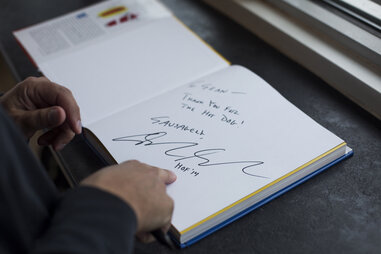 To Sean —
Thank you for
The Hot Dog!
Sausages!
HOF '14